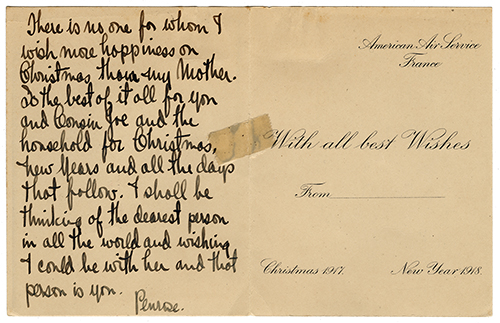 There is no one for whom I
wish more happiness on
Christmas than my Mother.
So the best of it all for you
and Cousin Joe and the
household for Christmas,
New Years and all the days
that follow. I shall be
thinking of the dearest person
in all the world and wishing
I could be with her and that
person is you.
Penrose.
American Air Service
France
With all best Wishes
From
Christmas 1917. New Year 1918.